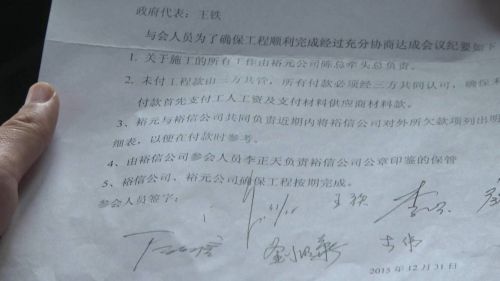 政府代表：王铁
与会人员为了确保工程顺利完成经过充分协商达成会议纪要如下
1、关于施工的所有工作由裕元公司陈总牵头总负责。
2、未付工程款由三方共管，所有付款必须经三方共同认可，确保
付款首先支付工人工资及支付材料供应商材料款。
3、裕元与裕信公司共同负责近期内将裕信公司对外所欠款项列出明
细表，以便在付款时参考。
4、由裕信公司参会人员李正天负责裕信公司公章印鉴的保管
5、裕信公司、裕元公司确保工程按期完成。
参会人员签字：
2013年12月31日